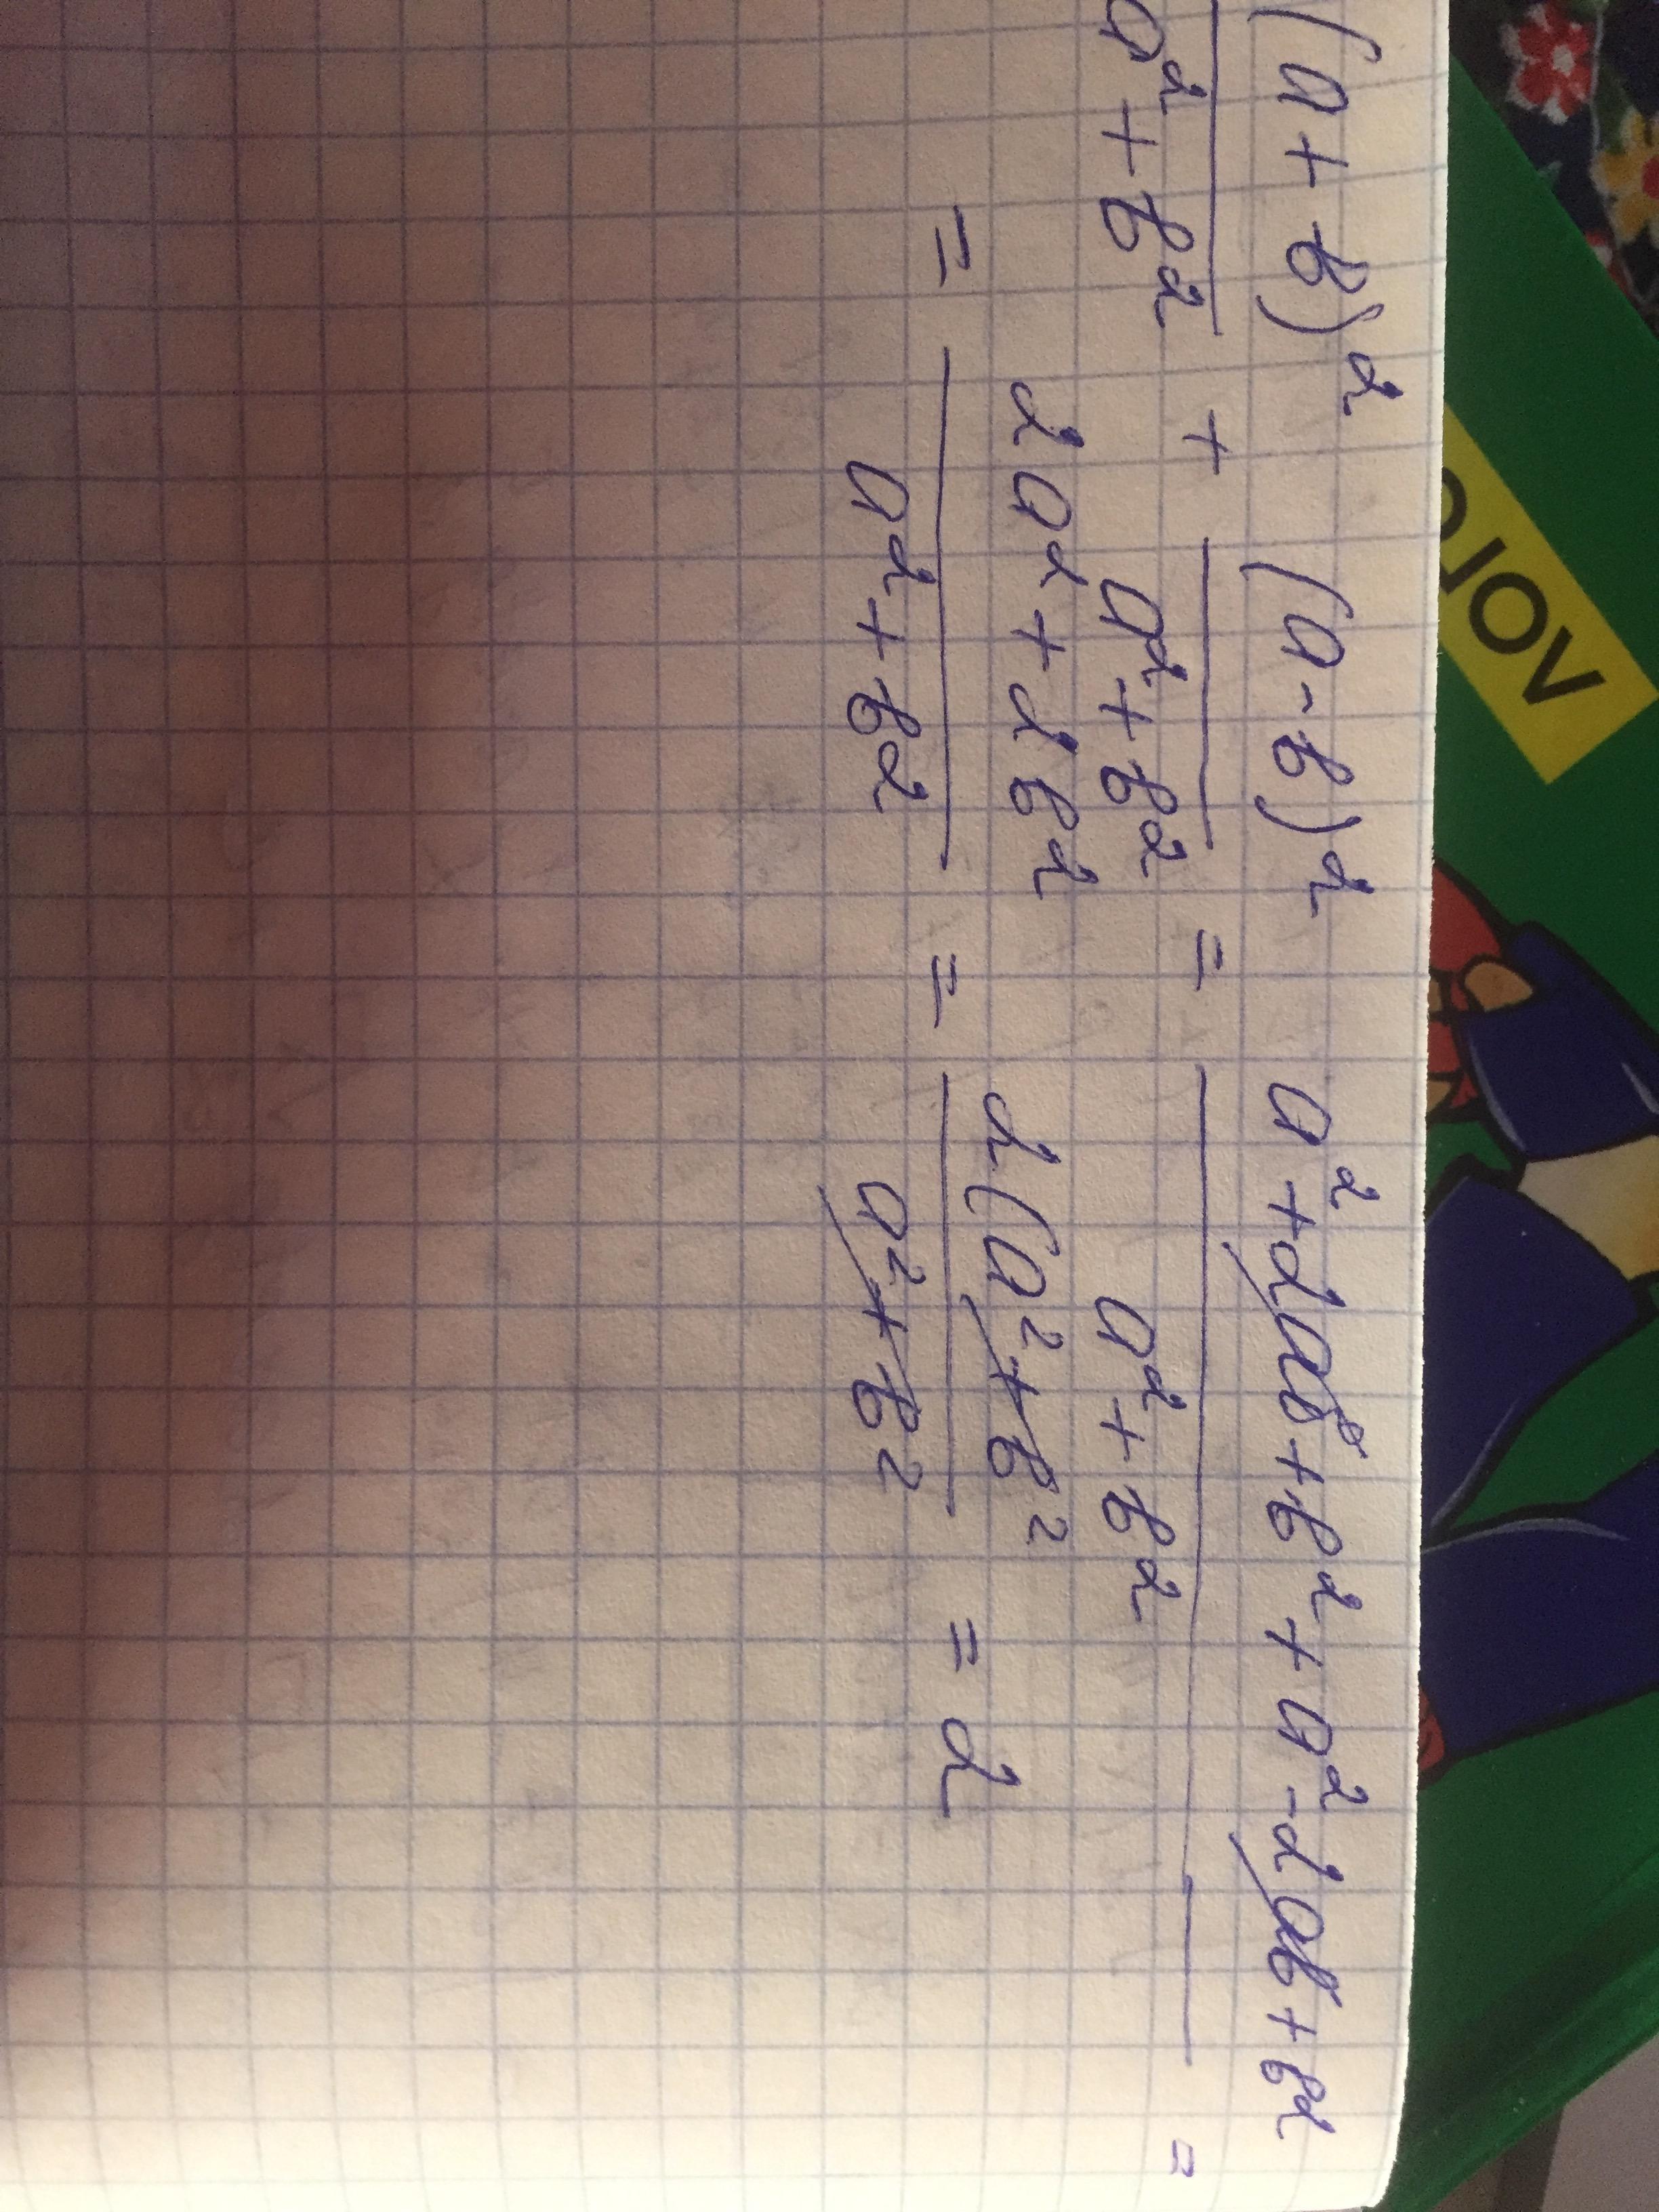 (a + b)² / (a² + b²) + (a - b)² / (a² + b²) = (a² + 2ab + b² + a² - 2ab + b²) / (a² + b²) =
= (2a² + 2b²) / (a² + b²) = 2(a² + b² / (a² + b²) = 2